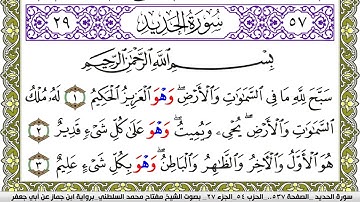 ٢٩ سُورَةُ الحَدِيدِ ٥٧
بِسْمِ اللَّهِ الرَّحْمَٰنِ الرَّحِيمِ
سَبَّحَ لِلَّهِ مَا فِى السَّمَٰوَٰتِ وَالْأَرْضِ وَهْوَ الْعَزِيزُ الْحَكِيمُ ١ لَهُۥ مُلْكُ
السَّمَٰوَٰتِ وَالْأَرْضِ يُحْىِۦ وَيُمِيتُ وَهْوَ عَلَىٰ كُلِّ شَىْءٍ قَدِيرٌ ٢
هُوَ الْأَوَّلُ وَالْآخِرُ وَالظَّٰهِرُ وَالْبَاطِنُ وَهْوَ بِكُلِّ شَىْءٍ عَلِيمٌ ٣
سورة الحديد _ الصفحة ٥٣٧ .. الحزب ٥٤ الجزء ٢٧ _ بصوت الشيخ مفتاح محمد السلطني _ برواية ابن جماز عن أبي جعفر